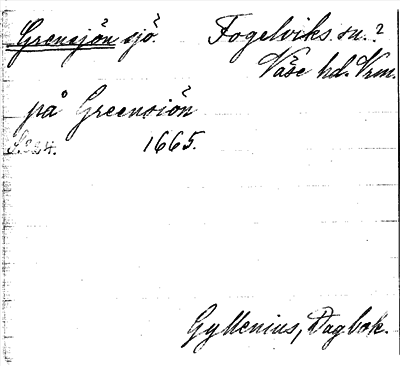 Grensjön sjö. Fogelviks. sn.?
Väse hd. Vrm.
på Greensiön
S. 224. 1665.
Gyllenius, Dagbok.